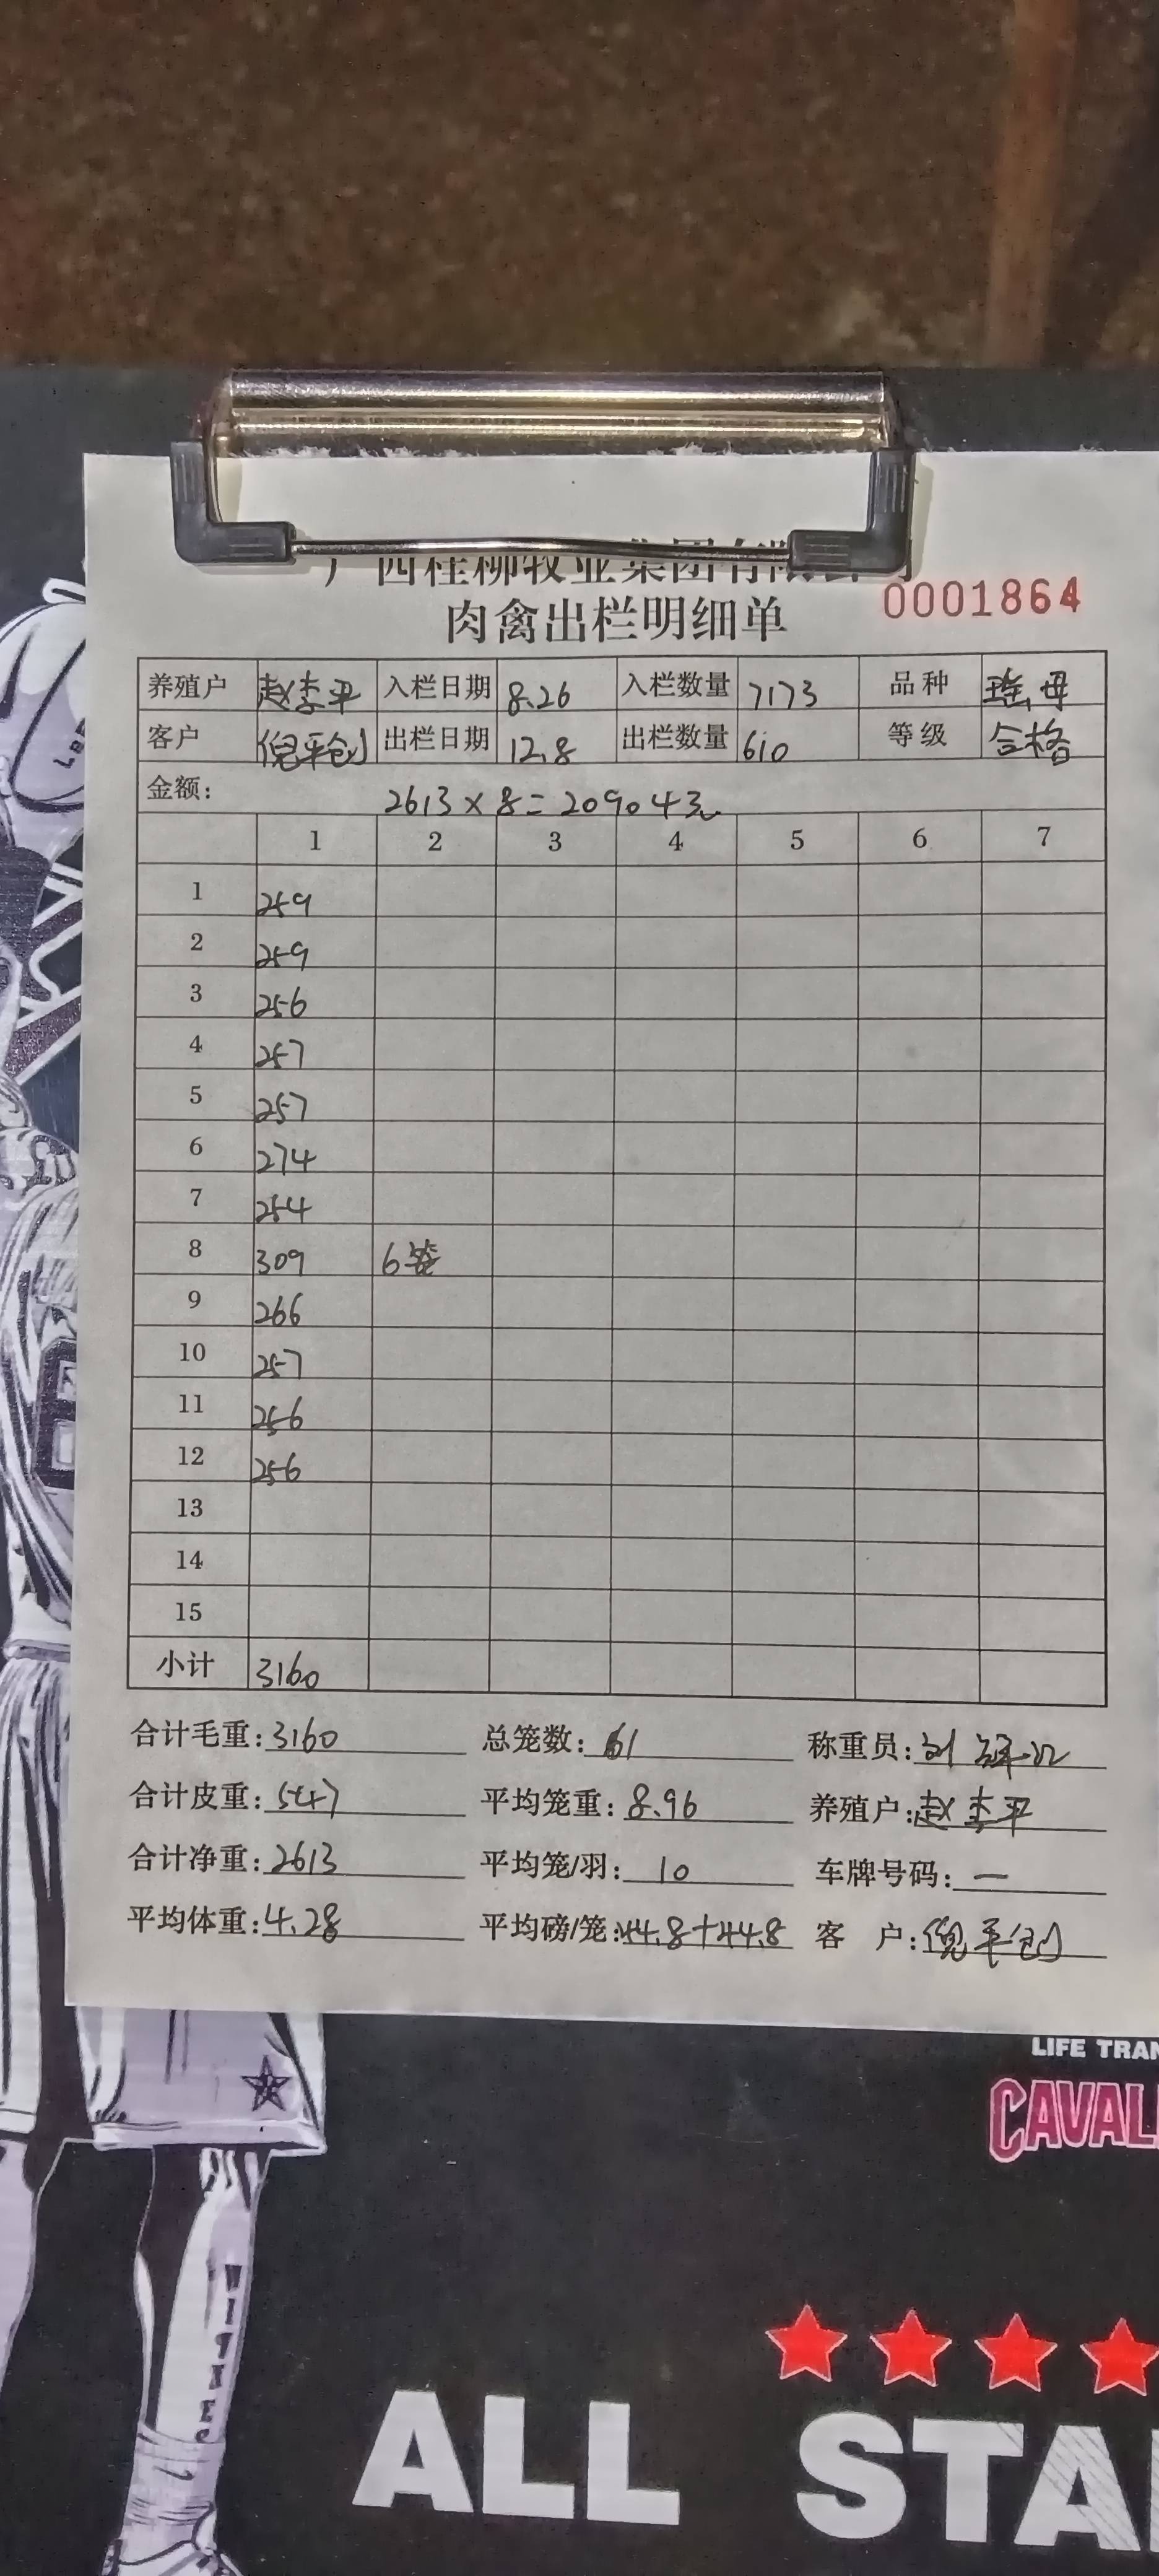 广西桂柳牧业集团有限公司
肉禽出栏明细单
0001864
养殖户 赵李平 入栏日期 8.26 入栏数量 7173 品种 瑶母
客户 倪平创 出栏日期 12.8 出栏数量 610 等级 合格
金额: 2613×8=20904元
1 2 3 4 5 6 7
1 259
2 259
3 256
4 257
5 257
6 274
7 254
8 309 6笼
9 266
10 257
11 256
12 256
13
14
15
小计 3160
合计毛重: 3160 总笼数: 61 称重员: 刘
合计皮重: 547 平均笼重: 8.96 养殖户: 赵李平
合计净重: 2613 平均笼/羽: 10 车牌号码: 一
平均体重: 4.28 平均磅/笼: 44.8+44.8 客 户: 倪平创
LIFE TRAN
CAVAL
ALL STA